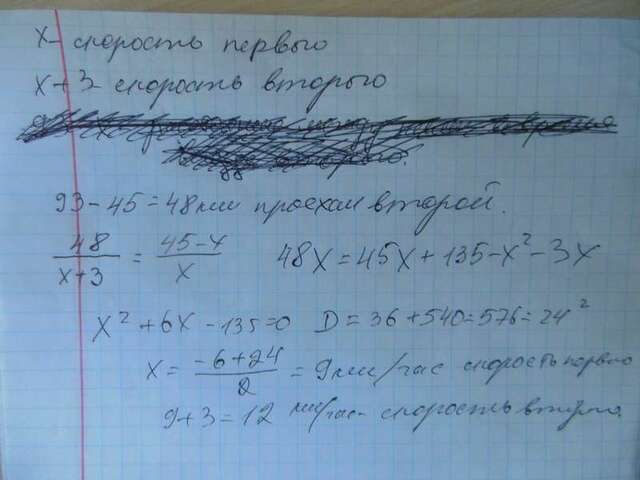 x - скорость первого
x + 3 - скорость второго
93 - 45 = 48 км проехал второй.
48/(x+3) = (45-x)/x 48x = 45x + 135 - x² - 3x
x² + 6x - 135 = 0 D = 36 + 540 = 576 = 24²
x = (-6+24)/2 = 9 км/час скорость первого
9 + 3 = 12 км/час - скорость второго.